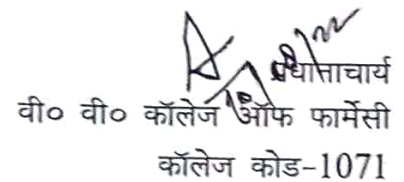 प्रधानाचार्य
वी० वी० कॉलेज ऑफ फार्मेसी
कॉलेज कोड-1071